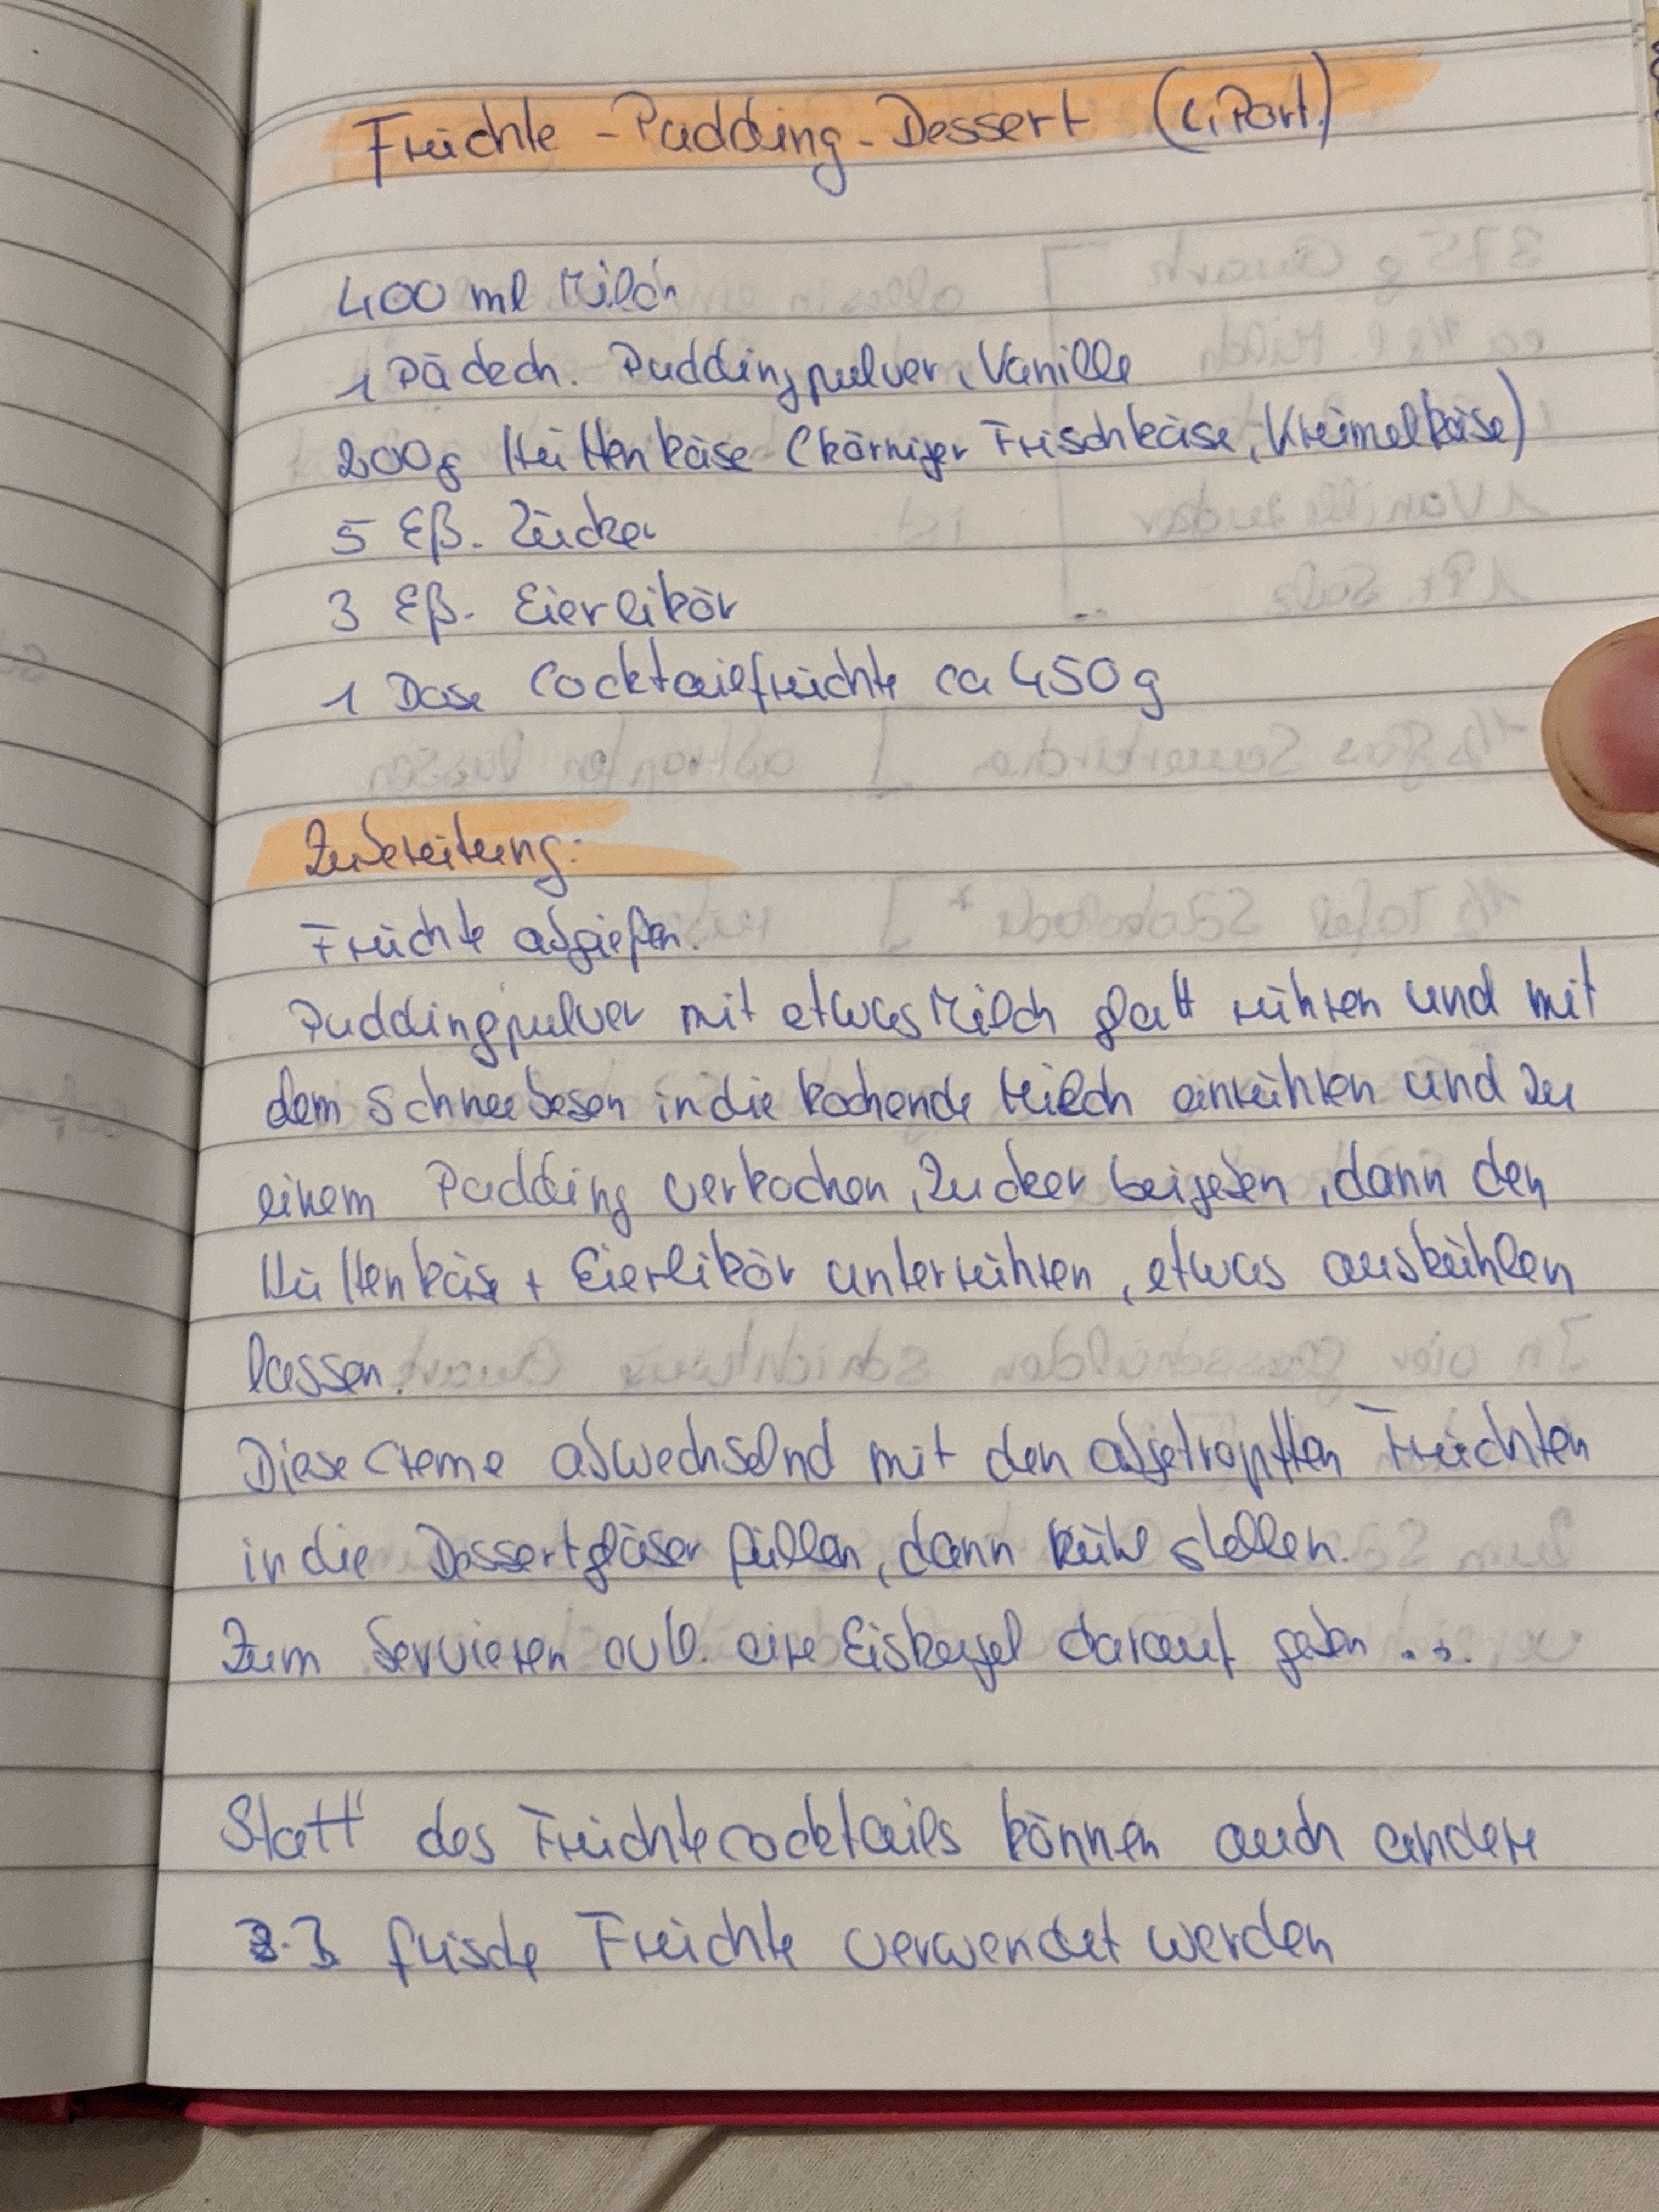 Früchte-Pudding-Dessert (4 Port.)
400 ml Milch
1 Päckch. Puddingpulver, Vanille
200g Hüttenkäse (körniger Frischkäse, Krümelkäse)
5 Eß. Zucker
3 Eß. Eierlikör
1 Dose Cocktailfrüchte ca 450g
Zubereitung:
Früchte abgießen.
Puddingpulver mit etwas Milch glatt rühren und mit
dem Schneebesen in die kochende Milch einrühren und zu
einem Pudding verkochen, Zucker beigeben, dann den
Hüttenkäse + Eierlikör unterrühren, etwas auskühlen
lassen.
Diese Creme abwechselnd mit den abgetropften Früchten
in die Dessertgläser füllen, dann kühl stellen.
Zum Servieren eine Eiskugel darauf geben ...
Statt des Früchtecocktails können auch andere
frische Früchte verwendet werden